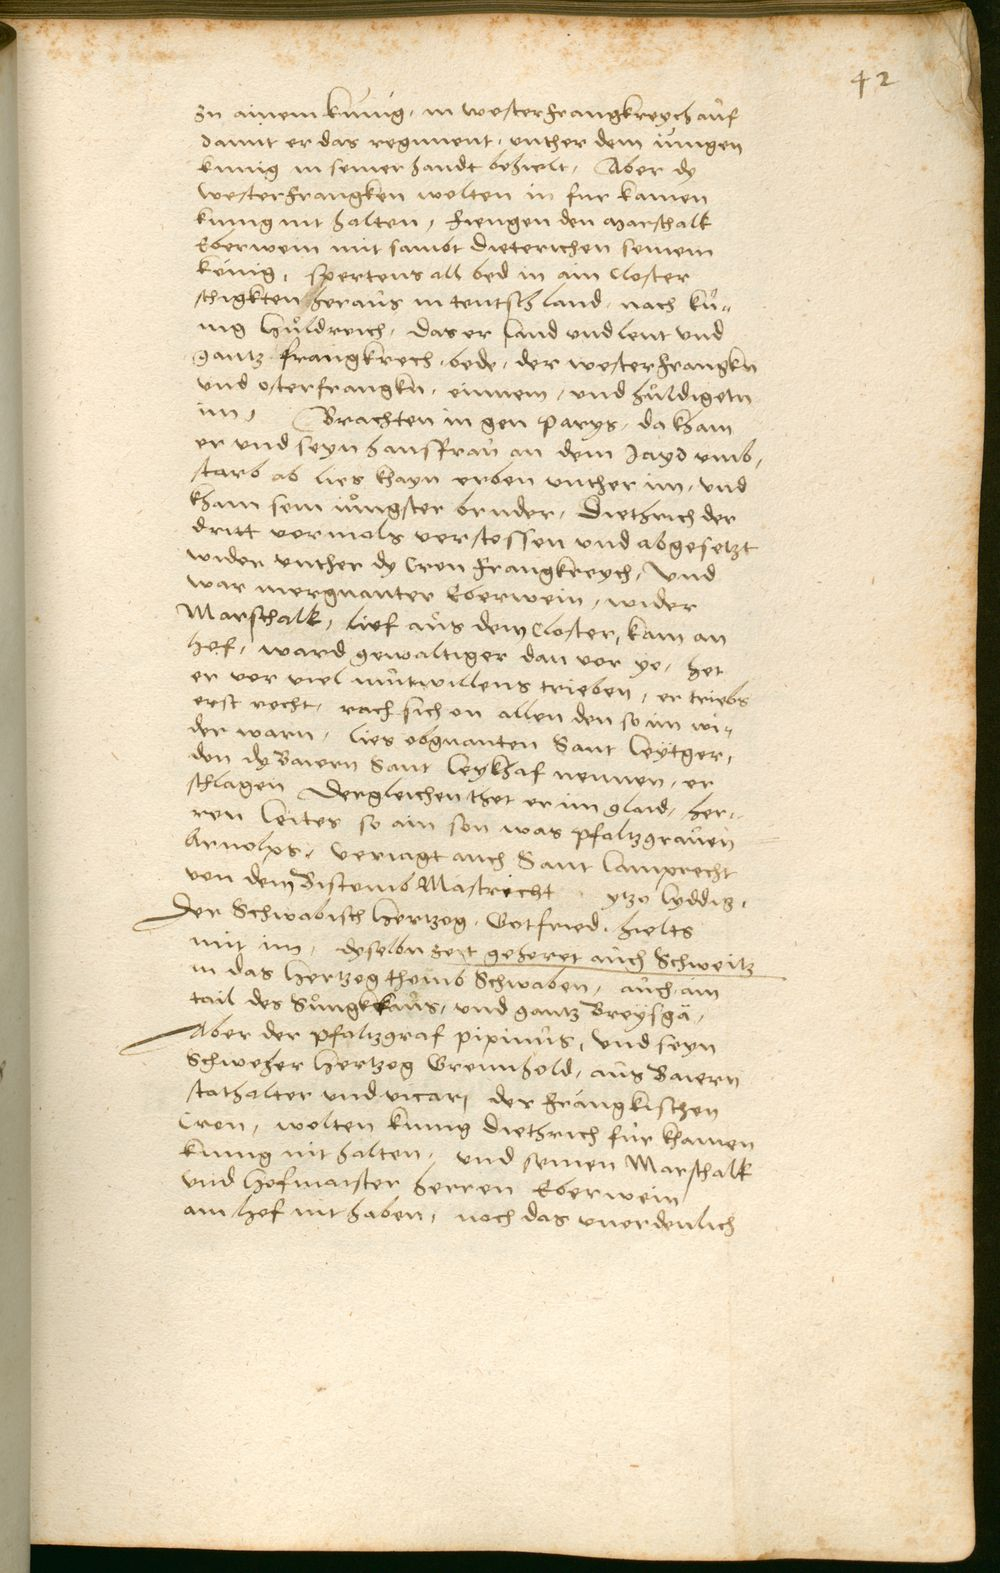 42
zu ainem kunig, in westerfrangkreych auf
damit er das regiment, unther dem iungen
kunig in seiner handt behielt, Aber dy
westerfrangken wolten in fur kainen
kunig nit halten, fiengen den Marschalk
Eberwein mit sambt Dieterichen seinem
kenig, spertens all bed in ain Closter
schigkten heraus in teutschland, nach ků„
nig Hůldreich, das er land und leut und
gantz frangkrech, bede, der westerfrangkn
und osterfrangkn, einnem, und hůldigetn
im, Brachten in gen Parys, da kham
er und seyn hausfrau an dem Jayd umb,
starb ab lies khayn erben unther im, und
kham sein iůngster bruder, Diethrich der
dritt vormals verstossen und abgesetzt
wider unther dy Cron frangkreych, Und
war mergnanter Eberwein, wider
Marschalk, lief aus dem Closter, kam an
hof, ward gewaltiger dan vor ye, het
er vor viel mutwillens trieben, er triebs
erst recht, rach sich on allen den so im wi„
der warn, lies obgnanten Sant Leytger,
den dy Baiern Sant Leykhaf nennen, er
schlagen Dergleichen thet er im glaid, her„
ren Leites so ain son was pfaltzgraven
Arnolphs, veriagt auch Sant Lamprecht
von dem Bistumb Mastricht, ytzo Lyddig,
Der Schwabisch Hertzog, Gotfried, hielts
mit im, dyselbn zeit gehoret auch Schweitz
in das Hertzogthomb Schwaben, auch ain
tail des Sůngkkaus, und gantz Breysgä,
Aber der pfaltzgraf Pipinus, und seyn
Schweher Hertzog Grimhold, aus Baiern
stathalter und vicari der frangkischen
Cron, wolten kunig Diethrich fur khainen
kunig nit halten, und seinen Marschalk
und Hofmaister herren Eberwein
am hof nit haben, noch das unordenlich